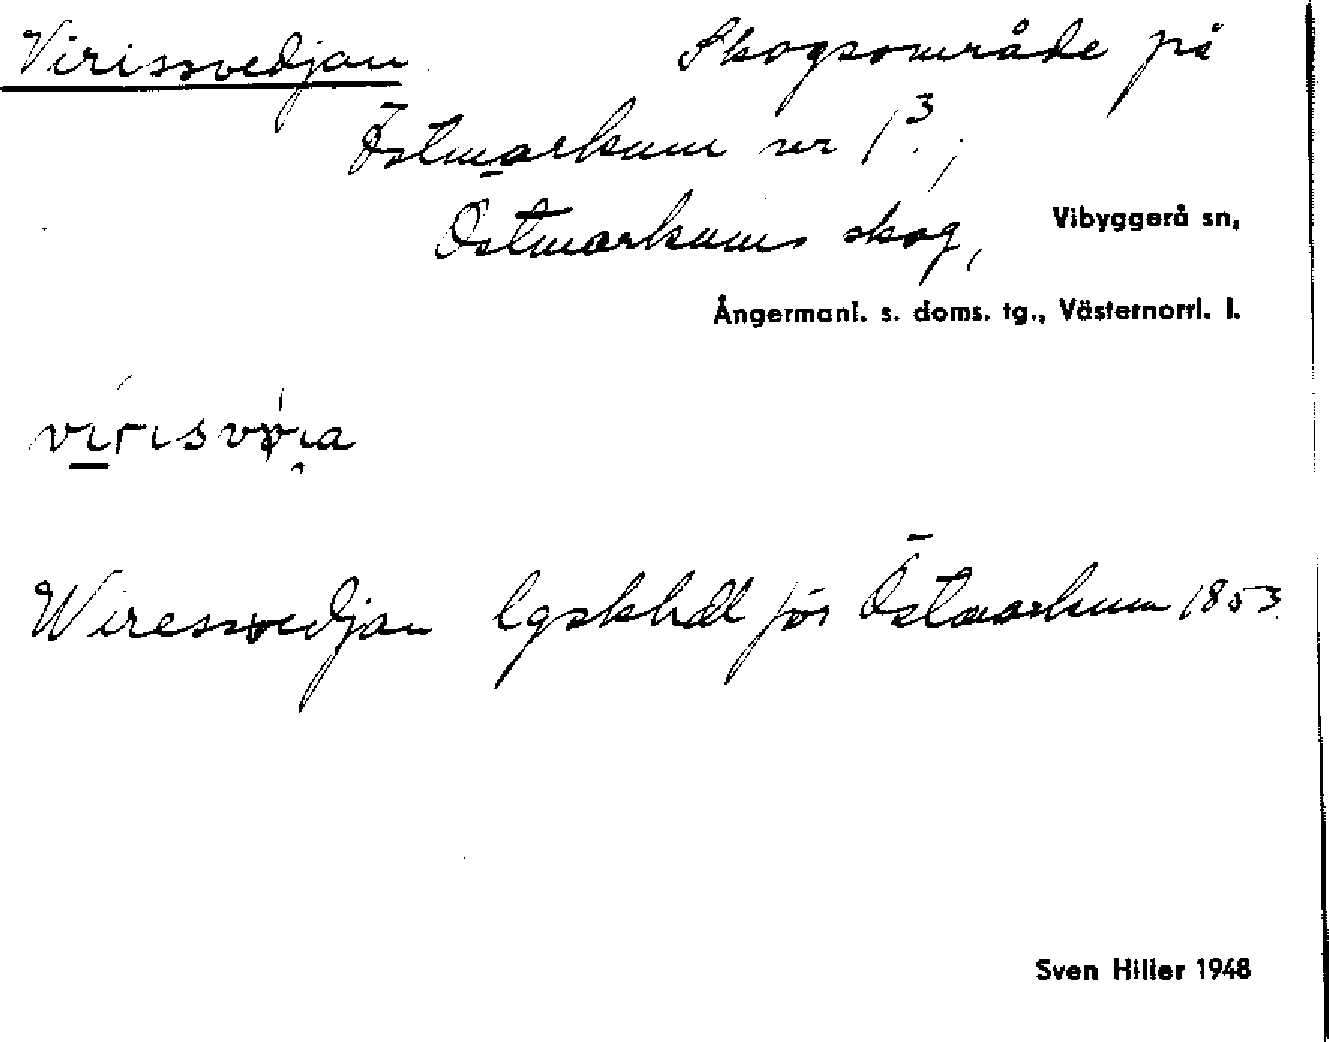 Virissvedjan Skogsområde på
Östmarkum nr 1³.,
Östmarkums skog, Vibyggerå sn,
Ångermanl. s. doms. tg., Västernorrl. l.
Wiressvedjan lgskhdl för Östmarkum 1853.
Sven Hilier 1948